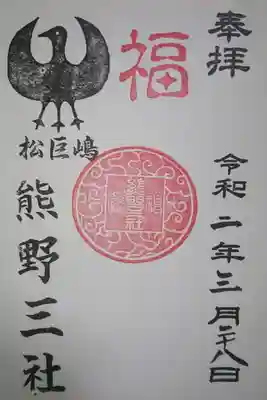 奉拝
令和二年三月二八日
福
松巨嶋
熊野三社